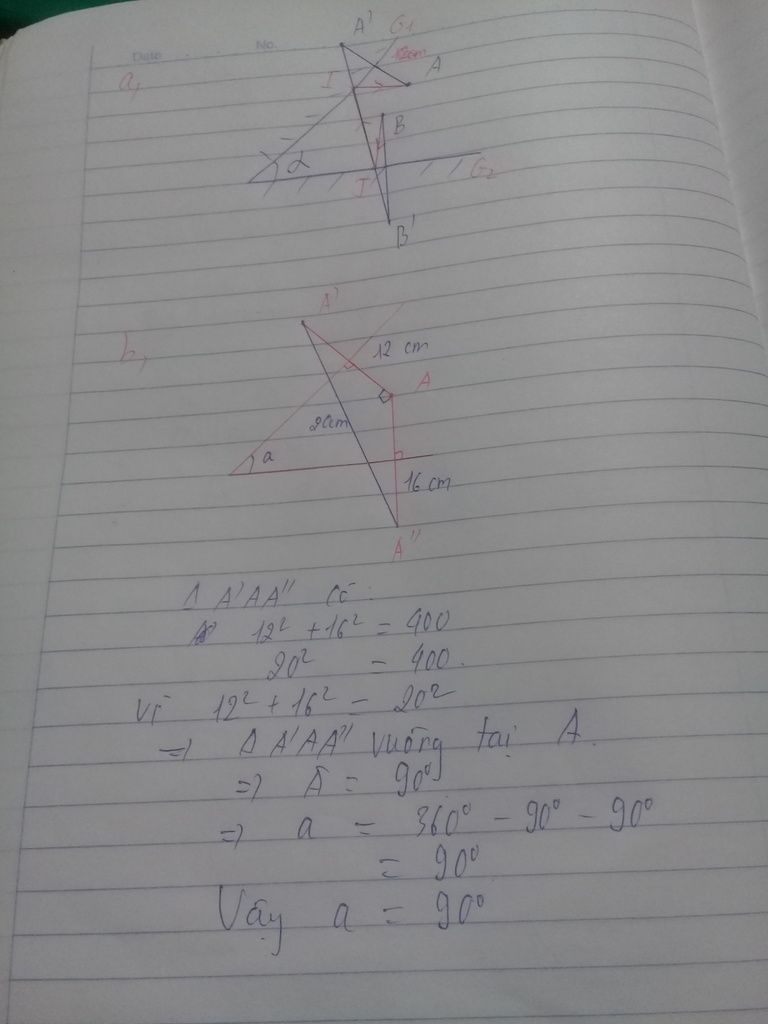 Date No.
a,
A' G1
12cm
I A
B
α
I G2
B'
b,
A'
12 cm
A
20cm
a
16 cm
A''
Δ A'AA'' có:
12² + 16² = 400
20² = 400.
Vì 12² + 16² = 20²
=> Δ A'AA'' vuông tại A.
=> Â = 90°
=> a = 360° - 90° - 90°
= 90°
Vậy a = 90°